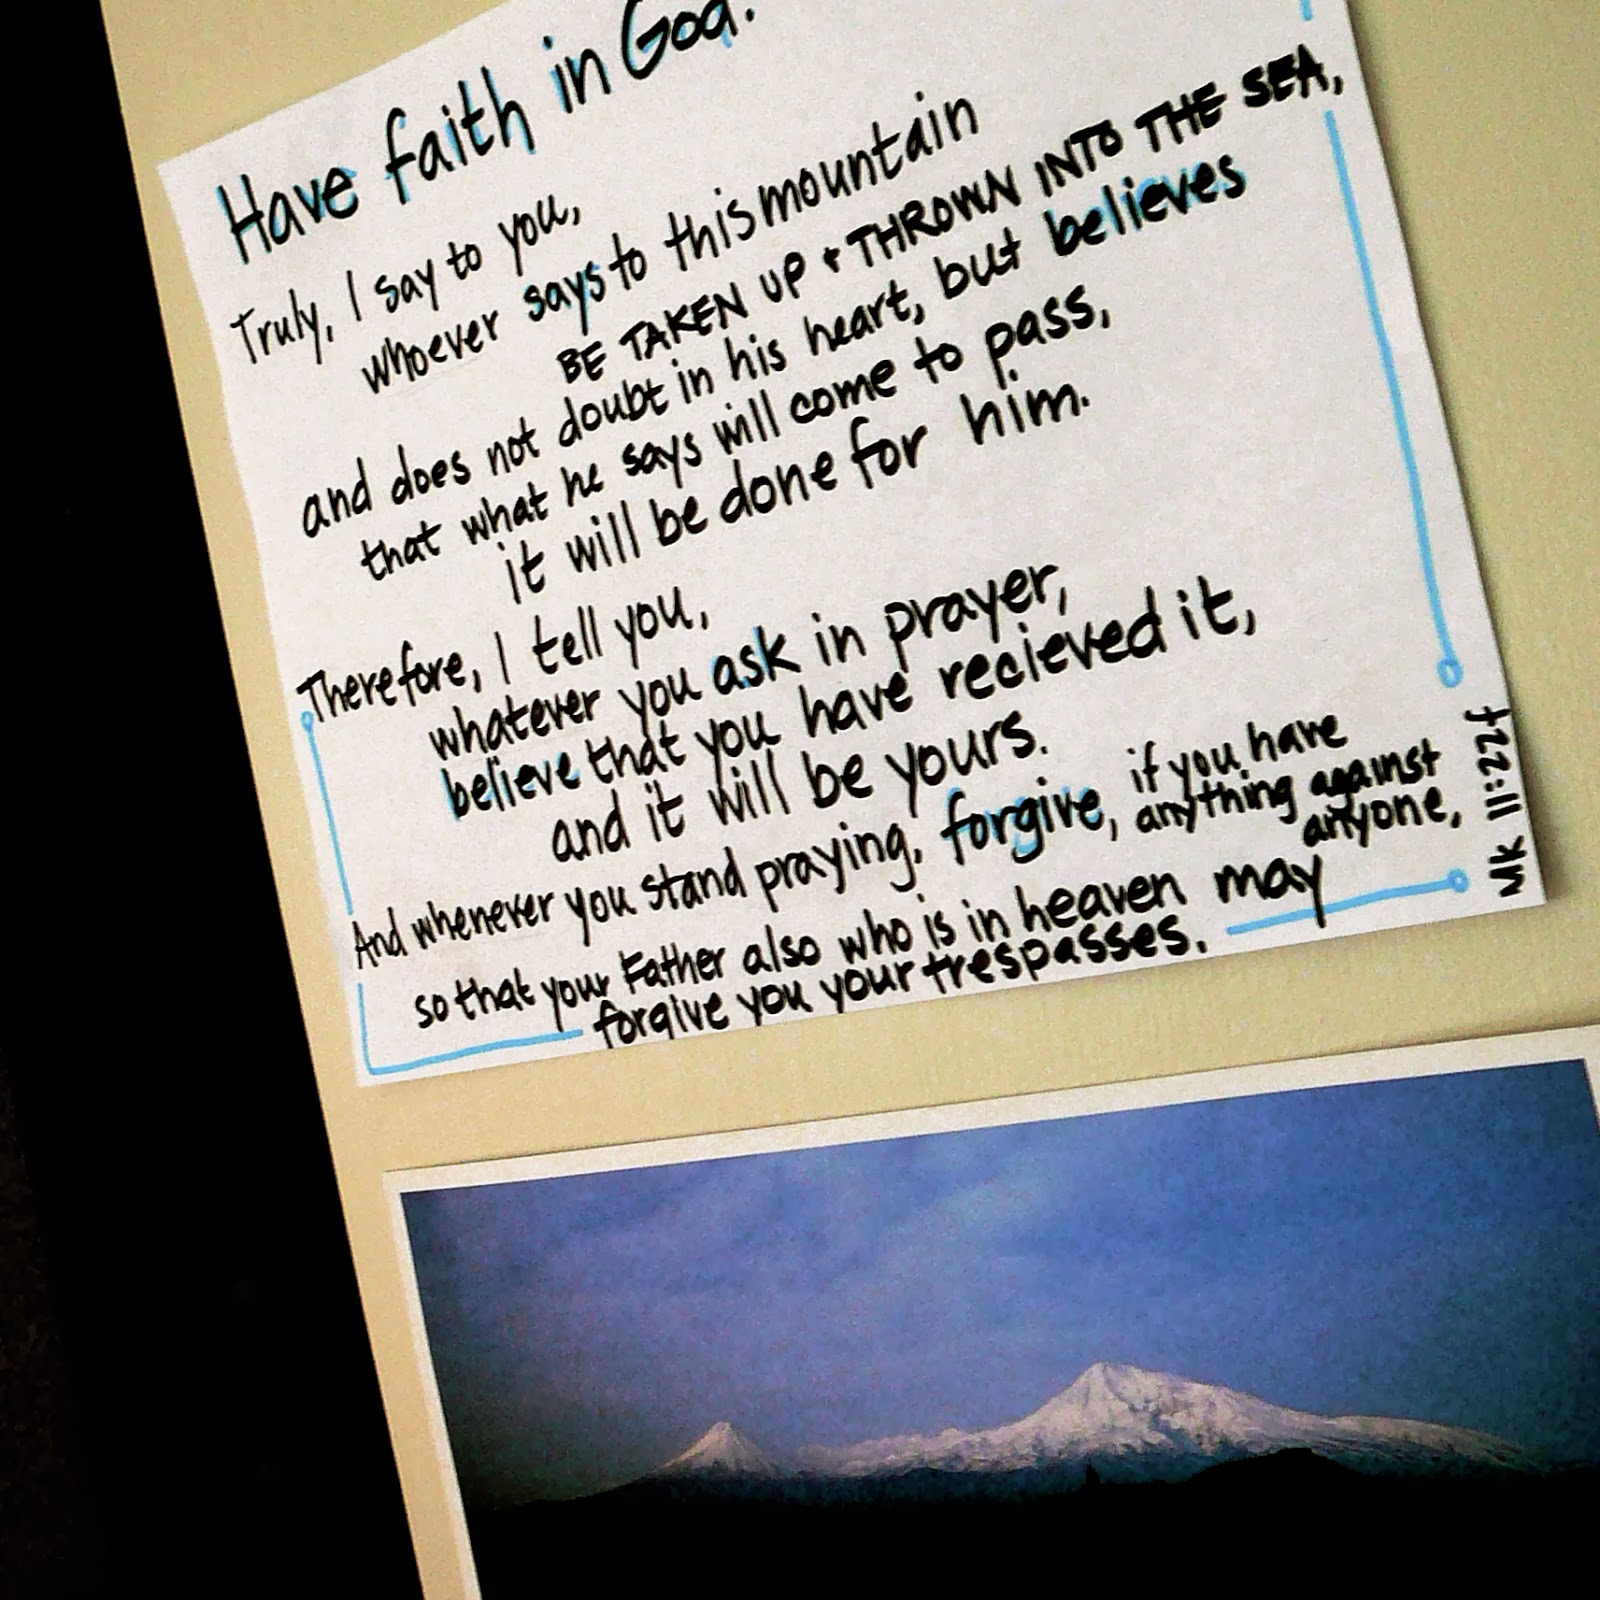 Have faith in God.
Truly, I say to you,
whoever says to this mountain
BE TAKEN UP + THROWN INTO THE SEA,
and does not doubt in his heart, but believes
that what he says will come to pass,
it will be done for him.
Therefore, I tell you,
whatever you ask in prayer,
believe that you have recieved it,
and it will be yours.
And whenever you stand praying, forgive, if you have
anything against
anyone,
so that your Father also who is in heaven may
forgive you your trespasses.
Mk 11:22f